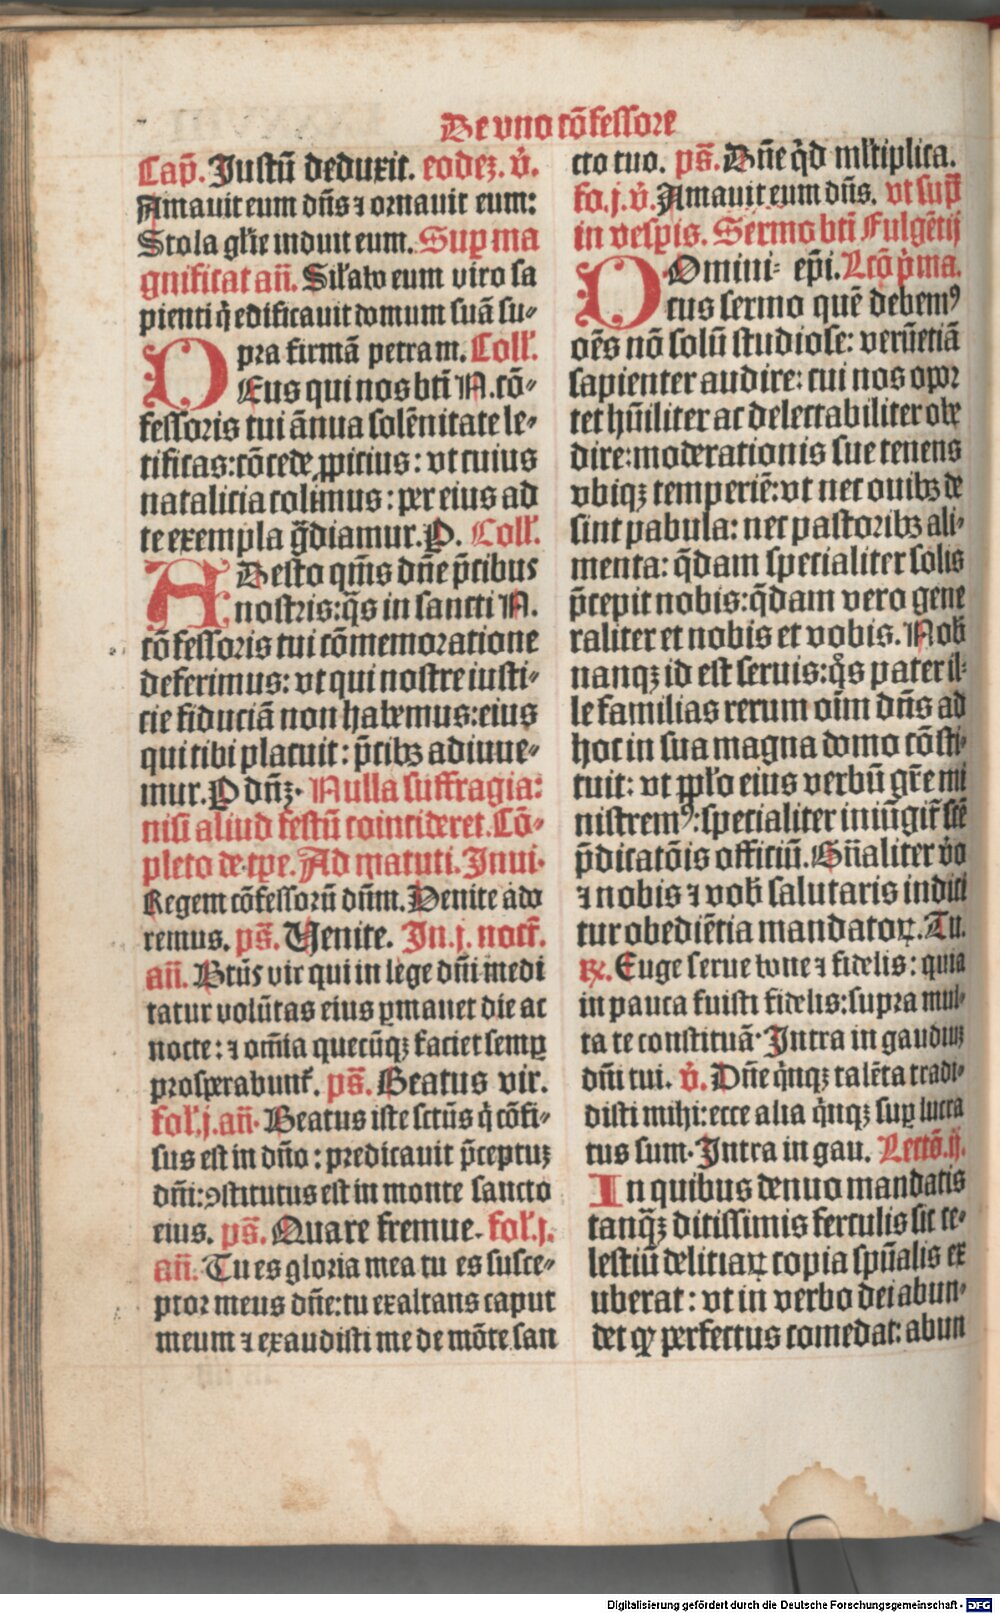 De vno cōfessore
Cap̄. Justū deduxit. eodeꝫ. v̉.
Amauit eum dn̄s ⁊ ornauit eum:
Stola gl̄ie induit eum. Suꝑ ma
gnificat an̄. Sil̓abo eum viro sa
pienti q̇ edificauit domum suā su⸗
pra firmā petram. Coll̓.
DEus qui nos bt̄i N. cō⸗
fessoris tui ānua solēnitate le⸗
tificas: cōcede ꝓpicius: vt cuius
natalicia colimus: per eius ad
te exempla gͣdiamur. P. Coll̓.
ADesto qm̄s dn̄e p̄cibus
nostris: q̄s in sancti N.
cōfessoris tui cōmemoratione
deferimus: vt qui nostre iusti⸗
cie fiduciā non habemus: eius
qui tibi placuit: p̄cibꝫ adiuue⸗
mur. P dn̄ꝫ. Nulla suffragia:
nisi aliud festū coincideret. Cō⸗
pleto de. tp̄e. Ad matuti. Jnui.
Regem cōfessorū dn̄m. Venite ado
remus. ps̄. Venite. Jn. j. noct̓.
an̄. Bt̄us vir qui in lege dn̄i medi
tatur volūtas eius ꝑmanet die ac
nocte: ⁊ om̄ia quecūqꝫ faciet semꝑ
prosperabunt̓. ps̄. Beatus vir.
fol̓. j. an̄. Beatus iste sct̄us q̇ cōfi⸗
sus est in dn̄o: predicauit p̄ceptuꝫ
dn̄i: ꝯstitutus est in monte sancto
eius. ps̄. Quare fremue. fol̓. j.
an̄. Tu es gloria mea tu es susce⸗
ptor meus dn̄e: tu exaltans caput
meum ⁊ exaudisti me de mōte san
cto tuo. ps̄. Dn̄e q̇d ml̓tiplica.
fo. j. v̉. Amauit eum dn̄s. vt sup̄
in vesp̄is. Sermo bt̄i Fulgētij
DOmini⸗ ep̄i. Lcō p̄ma.
cus sermo quē debemꝰ
oēs nō solū studiose: veꝝetiā
sapienter audire: cui nos opor
tet hūiliter ac delectabiliter obe
dire: moderationis sue tenens
vbiqꝫ temperiē: vt nec ouibꝫ de
sint pabula: nec pastoribꝫ ali⸗
menta: q̇dam specialiter solis
p̄cepit nobis: q̇dam vero gene
raliter et nobis et vobis. Nob̓
nanqꝫ id est seruis: q̇s pater il⸗
le familias rerum oīm dn̄s ad
hoc in sua magna domo cōsti⸗
tuit: vt pp̄lo eius verbū gr̄e mi
nistremꝰ: specialiter iniūgit̓ scē
p̄dicatōis officiū. Gn̄aliter v̊o
⁊ nobis ⁊ vob̓ salutaris indici
tur obediētia mandatoꝝ. Tu.
℞. Euge serue bone ⁊ fidelis: quia
in pauca fuisti fidelis: supra mul⸗
ta te constituā. Jntra in gaudiuꝫ
dn̄i tui. v̉. Dn̄e q̇nqꝫ talēta tradi⸗
disti mihi: ecce alia q̇nqꝫ suꝑ lucra
tus sum. Jntra in gau. Lectō. ij.
In quibus denuo mandatis
tanq̄ꝫ ditissimis ferculis sic ce⸗
lestiū deliciaꝝ copia spūalis ex
uberat: vt in verbo dei abun⸗
det qͦ perfectus comedat: abun
Digitalisierung gefördert durch die Deutsche Forschungsgemeinschaft - DFG